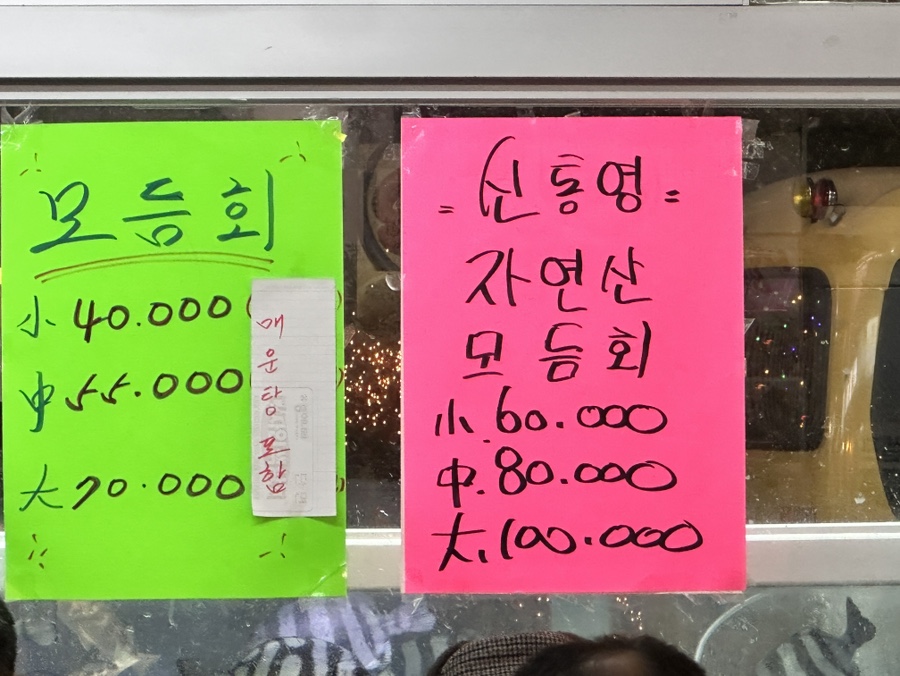 모듬회
小 40.000
中 55.000
大 70.000
매운탕 포함
= 신통영 =
자연산
모듬회
小. 60.000
中. 80.000
大. 100.000